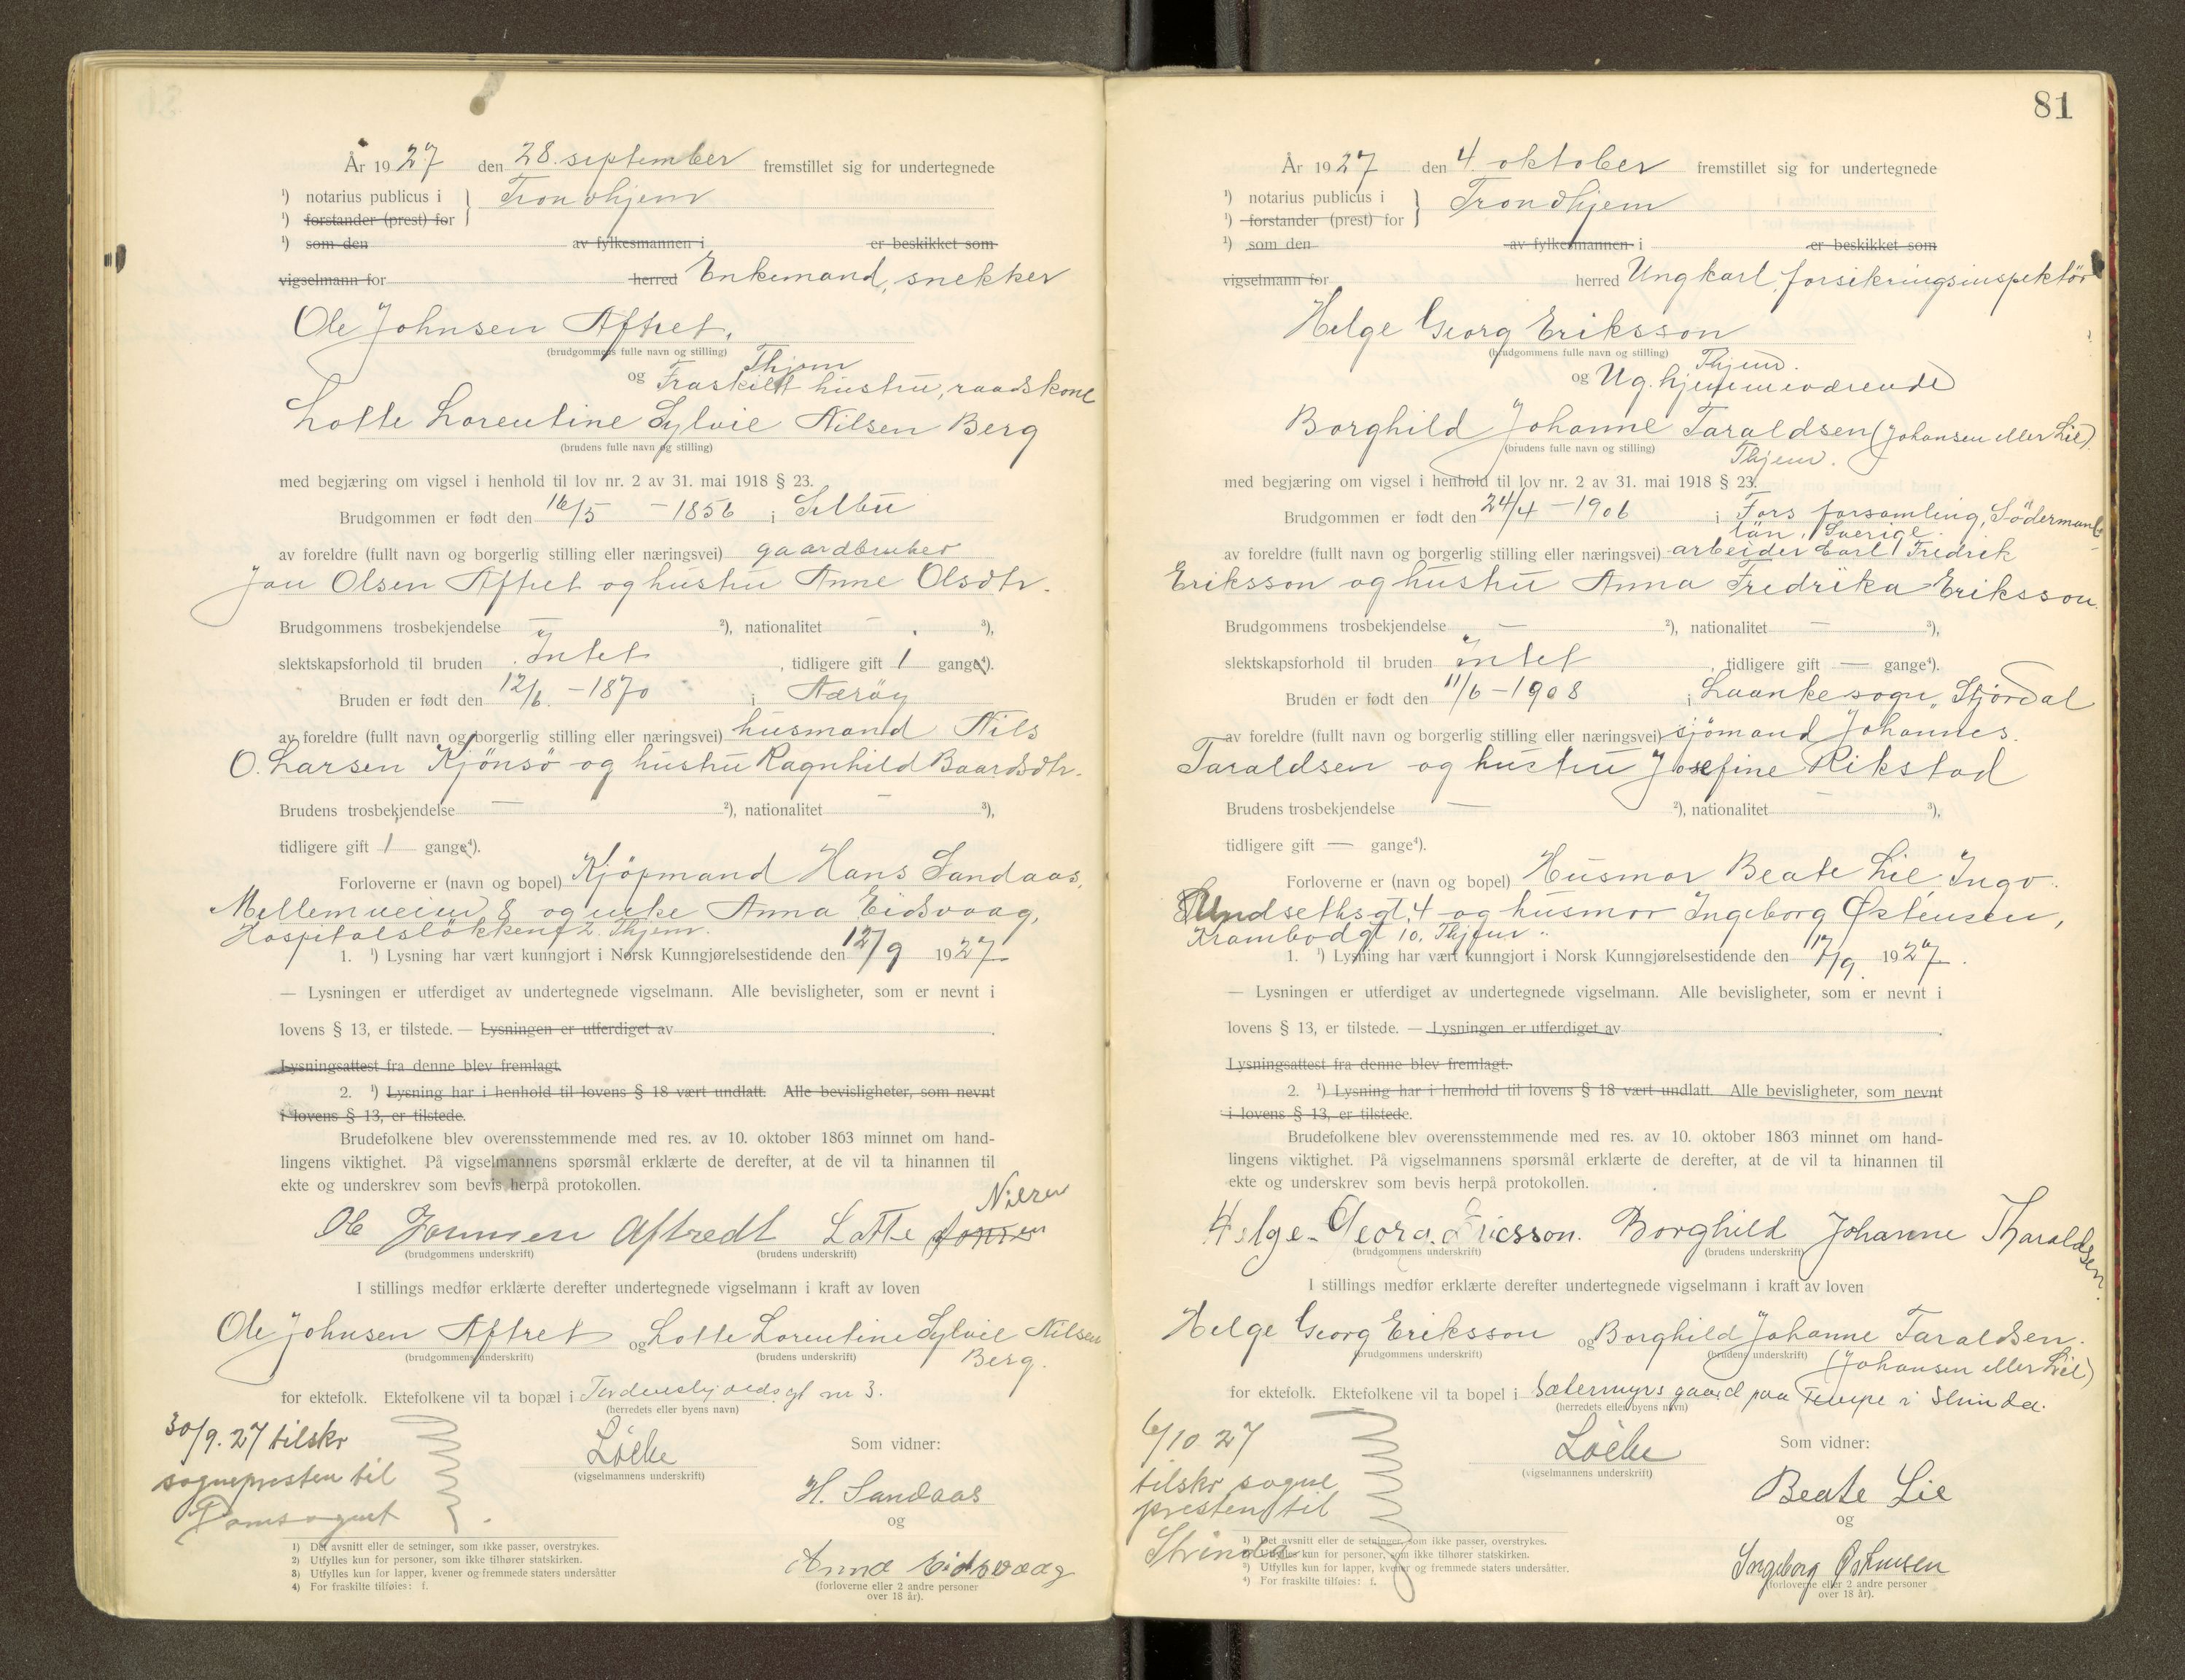 År 1927 den 28. september fremstillet sig for undertegnede
¹) notarius publicus i } Trondhjem
¹) forstander (prest) for
¹) som den av fylkesmannen i er beskikket som
vigselmann for herred Enkemand, snekker
Ole Johnsen Aftret,
(brudgommens fulle navn og stilling)
Thjem
og Fraskilt hustru, raadskone
Lotte Lorentine Sylvie Nilsen Berg
(brudens fulle navn og stilling)
med begjæring om vigsel i henhold til lov nr. 2 av 31. mai 1918 § 23.
Brudgommen er født den 16/5 - 1856 i Selbu
av foreldre (fullt navn og borgerlig stilling eller næringsvei) gaardbruker
Jon Olsen Aftret og hustru Anne Olsdtr.
Brudgommens trosbekjendelse — ²), nationalitet — ³),
slektskapsforhold til bruden Intet, tidligere gift 1 gange⁴).
Bruden er født den 12/6 - 1870 i Nærøy
av foreldre (fullt navn og borgerlig stilling eller næringsvei) husmand Nils
O. Larsen Kjönsö og hustru Ragnhild Baardsdtr.
Brudens trosbekjendelse — ²), nationalitet — ³),
tidligere gift 1 gange⁴).
Forloverne er (navn og bopel) Kjöpmand Hans Sandaas,
Mellemveien 8 og enke Anna Eidsvaag,
Hospitalsløkken 2. Thjem.
1. ¹) Lysning har vært kunngjort i Norsk Kunngjørelsestidende den 12/9 1927
— Lysningen er utferdiget av undertegnede vigselmann. Alle bevisligheter, som er nevnt i
lovens § 13, er tilstede. — Lysningen er utferdiget av .
Lysningsattest fra denne blev fremlagt.
2. ¹) Lysning har i henhold til lovens § 18 vært undlatt. Alle bevisligheter, som nevnt
i lovens § 13, er tilstede.
Brudefolkene blev overensstemmende med res. av 10. oktober 1863 minnet om hand-
lingens viktighet. På vigselmannens spørsmål erklærte de derefter, at de vil ta hinannen til
ekte og underskrev som bevis herpå protokollen.
Nilsen
Ole Johnsen Aftredt Lotte
(brudgommens underskrift) (brudens underskrift)
I stillings medfør erklærte derefter undertegnede vigselmann i kraft av loven
Ole Johnsen Aftret og Lotte Lorentine Sylvie Nilsen
(brudgommens underskrift) (brudens underskrift) Berg.
for ektefolk. Ektefolkene vil ta bopæl i Tordenskjoldsgt nr 3.
(herredets eller byens navn)
30/9.27 tilskr
sognepresten til
Domsognet
Som vidner:
(vigselmannens underskrift)
H. Sandaas
og
Anna Eidsvaag
(forloverne eller 2 andre personer
over 18 år).
1) Det avsnitt eller de setninger, som ikke passer, overstrykes.
2) Utfylles kun for personer, som ikke tilhører statskirken.
3) Utfylles kun for lapper, kvener og fremmede staters undersåtter
4) For fraskilte tilføies: f.
81
År 1927 den 4. oktober fremstillet sig for undertegnede
¹) notarius publicus i } Trondhjem
¹) forstander (prest) for
¹) som den av fylkesmannen i er beskikket som
vigselmann for herred Ungkarl, forsikringsinspektör
Helge Georg Eriksson
(brudgommens fulle navn og stilling)
Thjem.
og Ug. hjemmeværende
Borghild Johanne Taraldsen (Johansen eller Lie)
(brudens fulle navn og stilling)
Thjem.
med begjæring om vigsel i henhold til lov nr. 2 av 31. mai 1918 § 23.
Brudgommen er født den 24/4 - 1906 i Fors forsamling, Södermanl.
län, Sverige
av foreldre (fullt navn og borgerlig stilling eller næringsvei) arbeider Carl Fredrik
Eriksson og hustru Anna Fredrika Eriksson.
Brudgommens trosbekjendelse — ²), nationalitet — ³),
slektskapsforhold til bruden intet, tidligere gift — gange⁴).
Bruden er født den 11/6 - 1908 i Laanke sogn, Stjördal
av foreldre (fullt navn og borgerlig stilling eller næringsvei) sjömand Johannes
Taraldsen og hustru Josefine Rikstad
Brudens trosbekjendelse — ²), nationalitet — ³),
tidligere gift — gange⁴).
Forloverne er (navn og bopel) Husmor Beate Lie, Ingv.
gt. 4 og husmor Ingeborg Østensen,
Krambodgt 10. Thjem.
1. ¹) Lysning har vært kunngjort i Norsk Kunngjørelsestidende den 17/9 1927.
— Lysningen er utferdiget av undertegnede vigselmann. Alle bevisligheter, som er nevnt i
lovens § 13, er tilstede. — Lysningen er utferdiget av .
Lysningsattest fra denne blev fremlagt.
2. ¹) Lysning har i henhold til lovens § 18 vært undlatt. Alle bevisligheter, som nevnt
i lovens § 13, er tilstede.
Brudefolkene blev overensstemmende med res. av 10. oktober 1863 minnet om hand-
lingens viktighet. På vigselmannens spørsmål erklærte de derefter, at de vil ta hinannen til
ekte og underskrev som bevis herpå protokollen.
Helge Georg Ericsson. Borghild Johanne Tharaldsen.
(brudgommens underskrift) (brudens underskrift)
I stillings medfør erklærte derefter undertegnede vigselmann i kraft av loven
Helge Georg Eriksson og Borghild Johanne Taraldsen.
(brudgommens underskrift) (brudens underskrift) (Johansen eller Lie)
for ektefolk. Ektefolkene vil ta bopel i Sætermyrs gaard paa Tempe i Strinda.
(herredets eller byens navn)
6/10 27
tilskr sogne
presten til
Strinda
Som vidner:
(vigselmannens underskrift)
Beate Lie
og
Ingeborg Østensen
(forloverne eller 2 andre personer
over 18 år).
¹) Det avsnitt eller de setninger, som ikke passer, overstrykes.
²) Utfylles kun for personer, som ikke tilhører statskirken.
³) Utfylles kun for lapper, kvener og fremmede staters undersåtter.
⁴) For fraskilte tilføies: f.